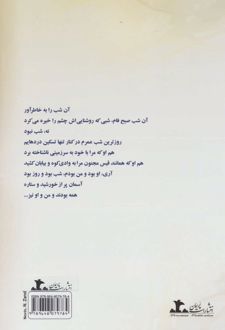 آن شب را به خاطر آور
آن شب صبح فام، شبی که روشنایی‌اش چشم را خیره می‌کرد
نه، شب نبود
روزترین شب عمرم در کنار تنها تسکین دردهایم
هم او که مرا با خود به سرزمینی ناشناخته برد
هم او که همانند قیس مجنون مرا به وادی کوه و بیابان کشید
آری، او بود و من بودم، شب بود و روز بود
آسمان پر از خورشید و ستاره
همه بودند، و من و او نیز...